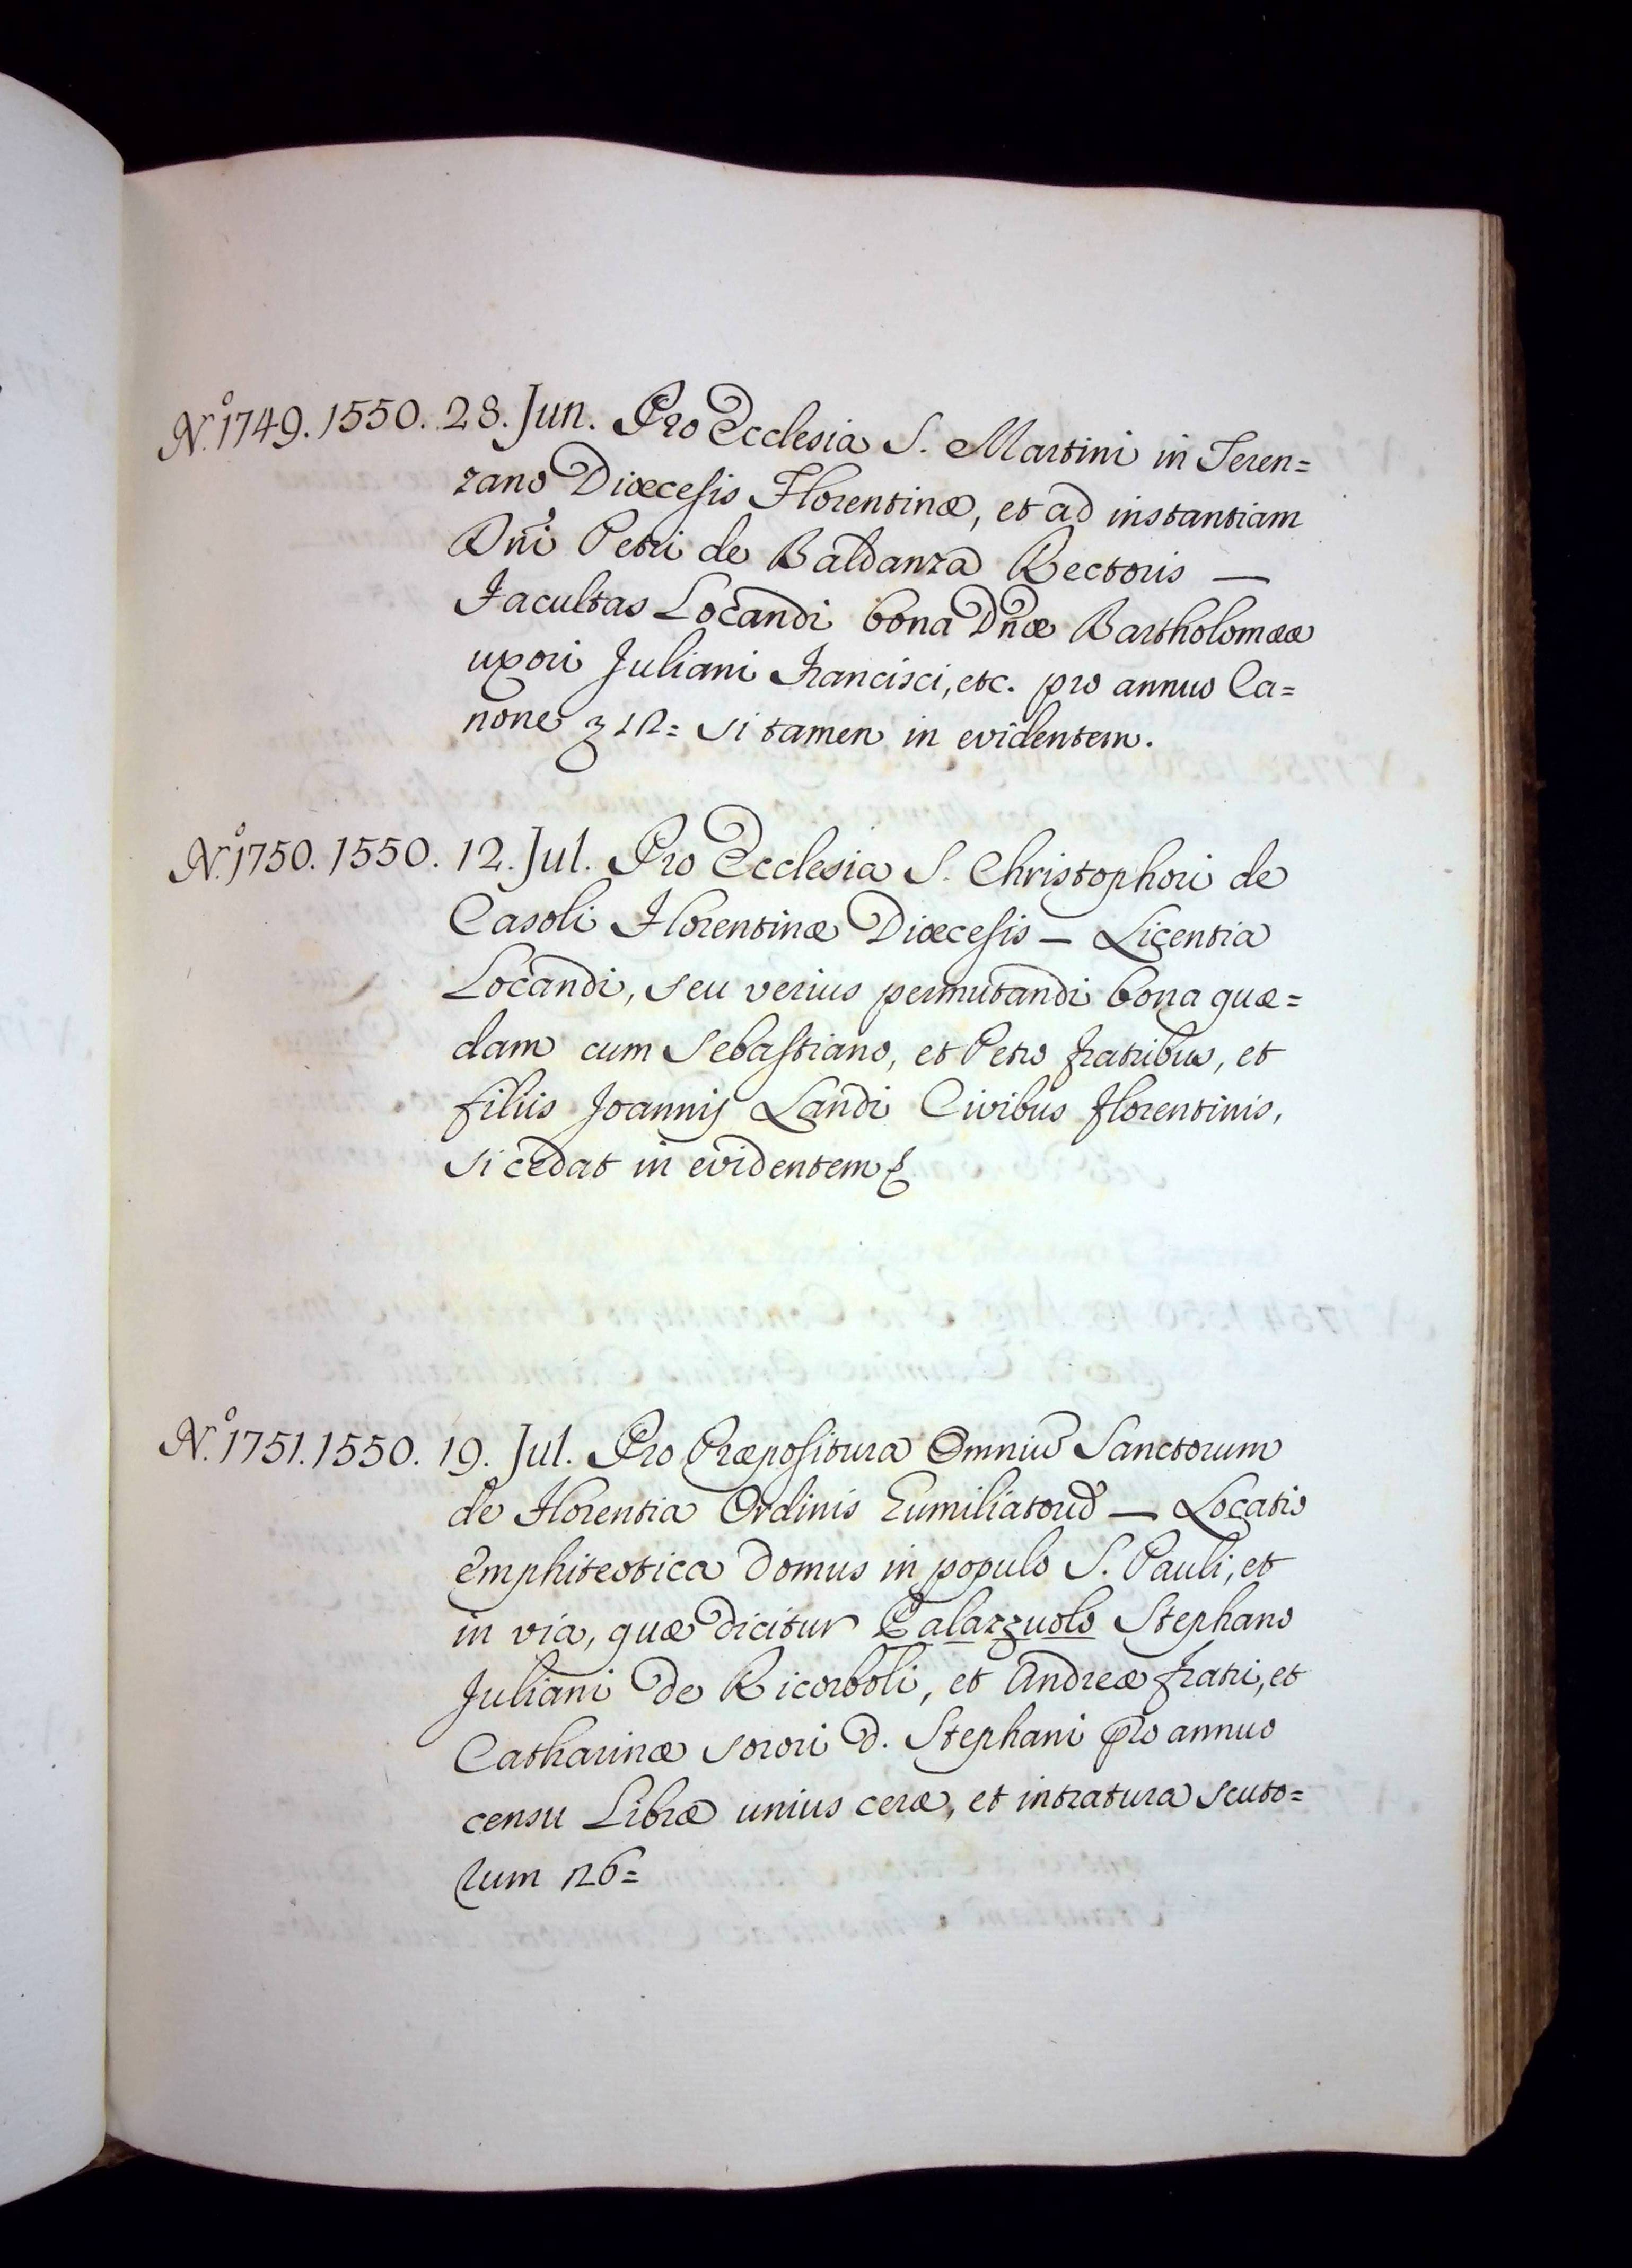 N.º 1749. 1550. 28. Jun. Pro Ecclesia S. Martini in Teren=
zano Diœcesis Florentinæ, et ad instantiam
Dñi Petri de Baldanza Rectoris —
Facultas Locandi bona Dñæ Bartholomææ
uxori Juliani Francisci, etc. pro annuo Ca=
none 12= si tamen in evidentem.
N.º 1750. 1550. 12. Jul. Pro Ecclesia S. Christophori de
Casoli Florentinæ Diœcesis — Licentia
Locandi, seu verius permutandi bona quæ=
dam cum Sebastiano, et Petro fratribus, et
filiis Joannis Landi Civibus florentinis,
si cedat in evidentem
N.º 1751. 1550. 19. Jul. Pro Præpositura Omniũ Sanctorum
de Florentia Ordinis Eumiliatorũ — Locatio
emphiteotica domus in populo S. Pauli, et
in via, quæ dicitur Palazzuolo Stephano
Juliani de Ricorboli, et Andreæ fratri, et
Catharinæ sorori d. Stephani pro annuo
censu Libræ unius ceræ, et intratura scuto=
rum 126=